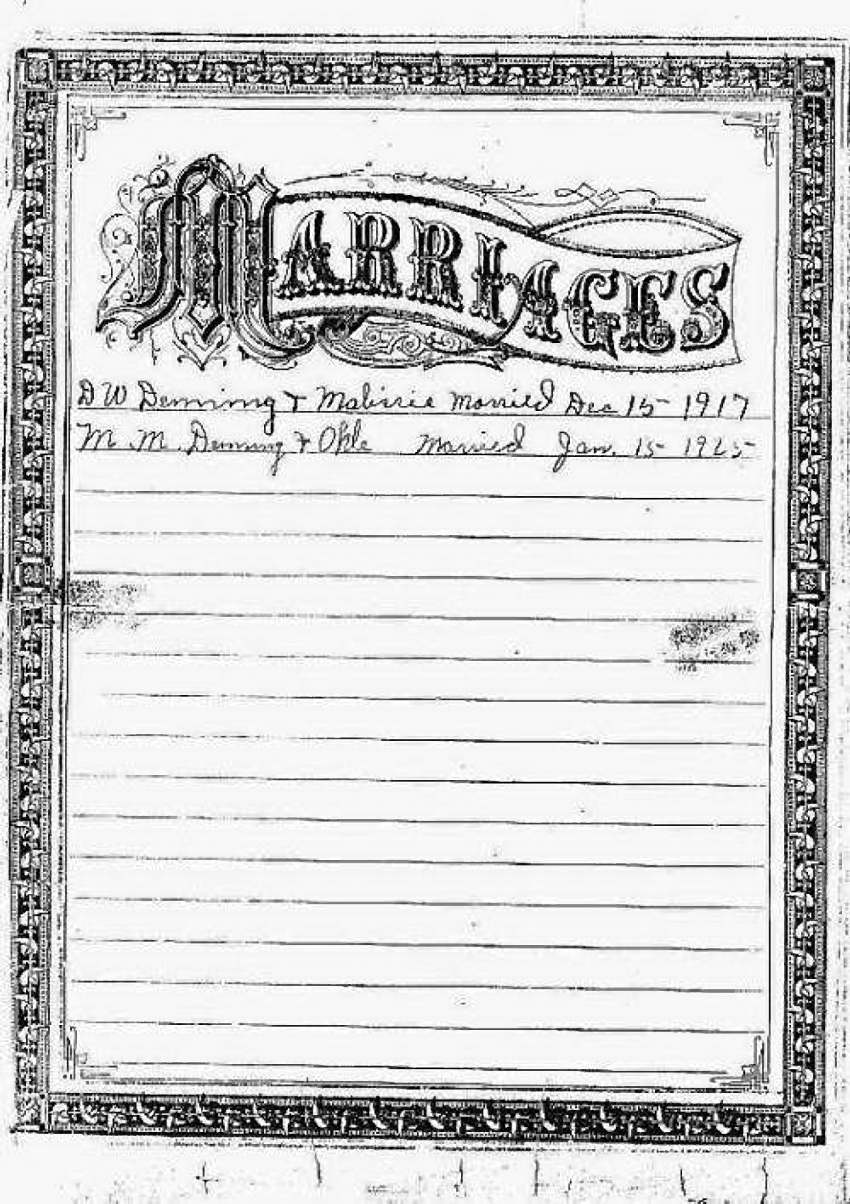 MARRIAGES
D W Deming & Malissie Married Dec 15 1917
M. M. Deming & Married Jan. 15 1925